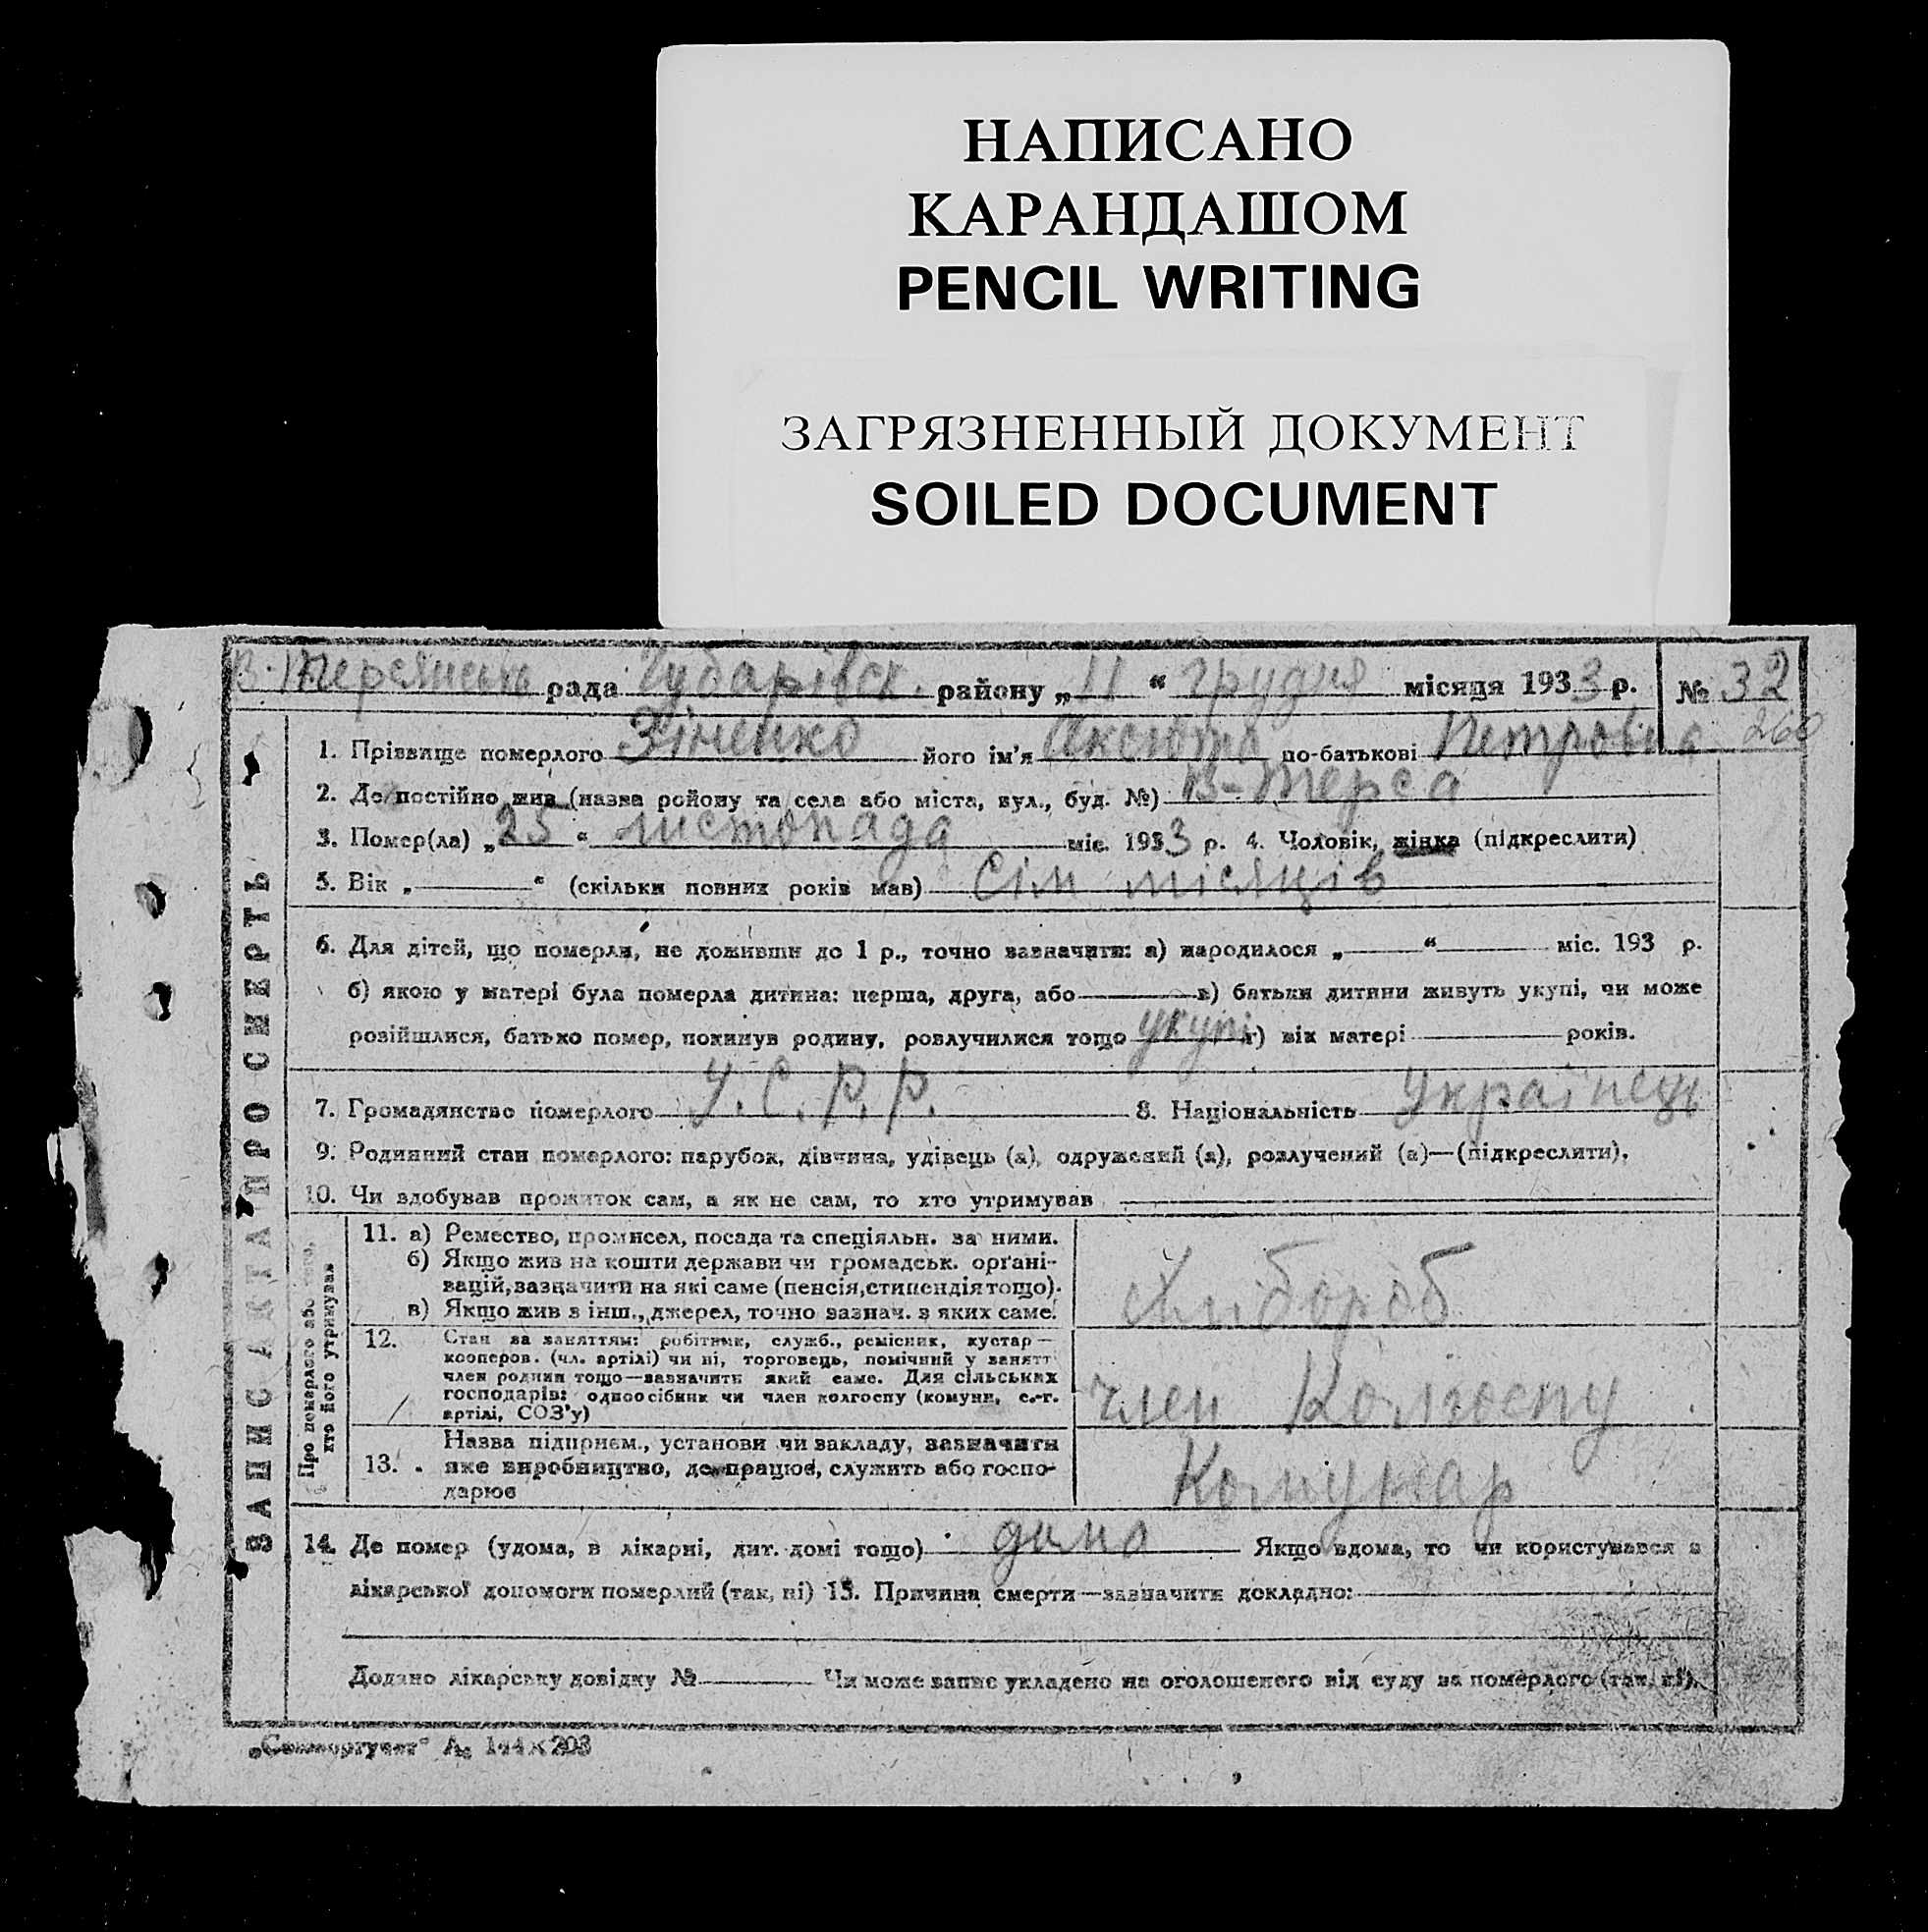 НАПИСАНО
КАРАНДАШОМ
PENCIL WRITING
ЗАГРЯЗНЕННЫЙ ДОКУМЕНТ
SOILED DOCUMENT
рада Чубарівськ. району „11“ грудня місяця 1933 р. № 32
260
ЗАПИС АКТА ПРО СМЕРТЬ
1. Прізвище померлого Зіненко його ім'я по-батькові Петровна
2. Де постійно жив (назва району та села або міста, вул., буд. №) В-Терса
3. Помер(ла) „25“ листопада міс. 1933 р. 4. Чоловік, жінка (підкреслити)
5. Вік „ “ (скільки повних років мав) Сім місяців
6. Для дітей, що померли, не доживши до 1 р., точно зазначити: а) народилося „ “ міс. 193 р.
б) якою у матері була померла дитина: перша, друга, або в) батьки дитини живуть укупі, чи може
розійшлися, батько помер, покинув родину, розлучилися тощо укупі г) вік матері років.
7. Громадянство померлого У.С.Р.Р. 8. Національність Українець
9. Родинний стан померлого: парубок, дівчина, удівець (а), одружений (а), розлучений (а)—(підкреслити).
10. Чи здобував прожиток сам, а як не сам, то хто утримував
Про померлого або того,
хто його утримував
11. а) Ремество, промисел, посада та спеціяльн. за ними.
б) Якщо жив на кошти держави чи громадськ. орґані-
зацій, зазначити на які саме (пенсія, стипендія тощо).
в) Якщо жив з інш., джерел, точно зазнач. з яких саме.
Хлібороб
12. Стан за заняттям: робітник, служб., ремісник, кустар—
кооперов. (чл. артілі) чи ні, торговець, помічний у занятт
член родини тощо—зазначити який саме. Для сільських
господарів: одноосібник чи член колгоспу (комуни, с.-г.
артілі, СОЗ'у)
член Колгоспу
Назва підприєм., установи чи закладу, зазначити
13. яке виробництво, де працює, служить або госпо-
дарює
Комунар
14. Де помер (удома, в лікарні, дит. домі тощо) дома Якщо вдома, то чи користувався з
лікарської допомоги померлий (так, ні) 15. Причина смерти—зазначити докладно:
Додано лікарську довідку № Чи може запис укладено на оголошеного від суду за померлого (так, ні).
203